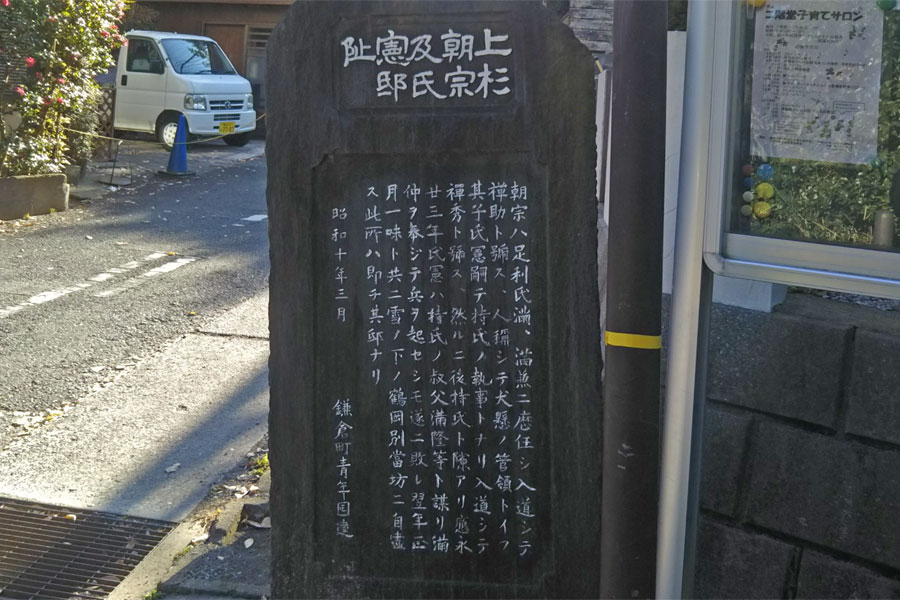 上杉
朝宗
及氏
憲邸
址
朝宗ハ足利氏滿、滿兼ニ歴任シ入道シテ
禅助ト號ス、人稱シテ犬懸ノ管領トイフ
其子氏憲嗣テ持氏ノ執事トナリ入道シテ
禅秀ト號ス、然ルニ後持氏ト隙アリ應永
廿三年氏憲ハ持氏ノ叔父滿隆等ト謀リ滿
仲ヲ奉シテ兵ヲ起セシモ遂ニ敗レ翌年正
月一味ト共ニ雪ノ下ノ鶴岡別當坊ニ自盡
ス此所ハ即チ其邸ナリ
昭和十年三月 鎌倉町青年団建
二階堂子育てサロン